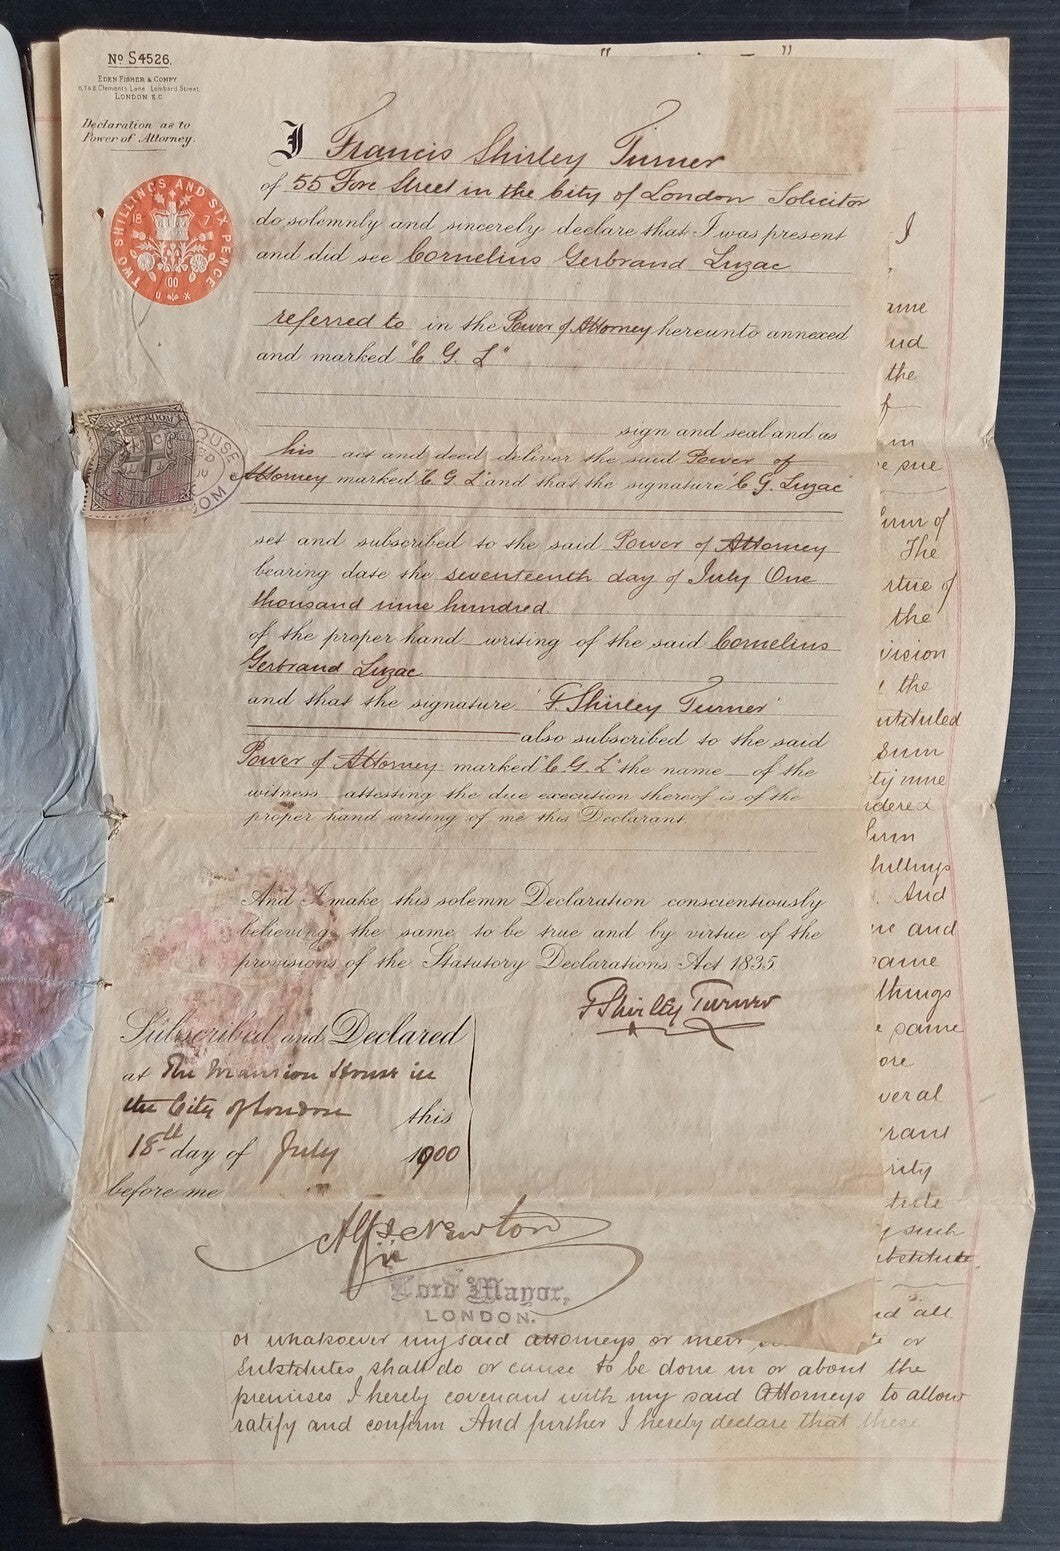 No S4526.
EDEN FISHER & COMPY.
6,7 & 8 Clements Lane Lombard Street,
LONDON. E.C
Declaration as to
Power of Attorney.
TWO SHILLINGS AND SIX PENCE
18 7
00
I Francis Shirley Turner
of 55 Fore Street in the City of London Solicitor
do solemnly and sincerely declare that I was present
and did see Cornelius Gerbrand Luzac
referred to in the Power of Attorney hereunto annexed
and marked "C. G. L"
sign and seal and as
his act and deed deliver the said Power of
Attorney marked "C. G. L" and that the signature 'C G. Luzac'
set and subscribed to the said Power of Attorney
bearing date the seventeenth day of July One
thousand nine hundred.
of the proper hand writing of the said Cornelius
Gerbrand Luzac
and that the signature 'F Shirley Turner'
also subscribed to the said
Power of Attorney marked "C. G. L" the name of the
witness attesting the due execution thereof is of the
proper hand writing of me this Declarant
And I make this solemn Declaration conscientiously
believing the same to be true and by virtue of the
provisions of the Statutory Declarations Act 1835
F Shirley Turner
Subscribed and Declared
at The Mansion House in
the City of London this
18th day of July 1900
before me
Alf. Newton
Lord Mayor,
LONDON.
I
and
the
The
the
the
sum
And
and
things
same
such
and all
or whatsoever my said attorneys or
or
Substitutes shall do or cause to be done in or about the
premises I hereby covenant with my said Attorneys to allow
ratify and confirm And further I hereby declare that these